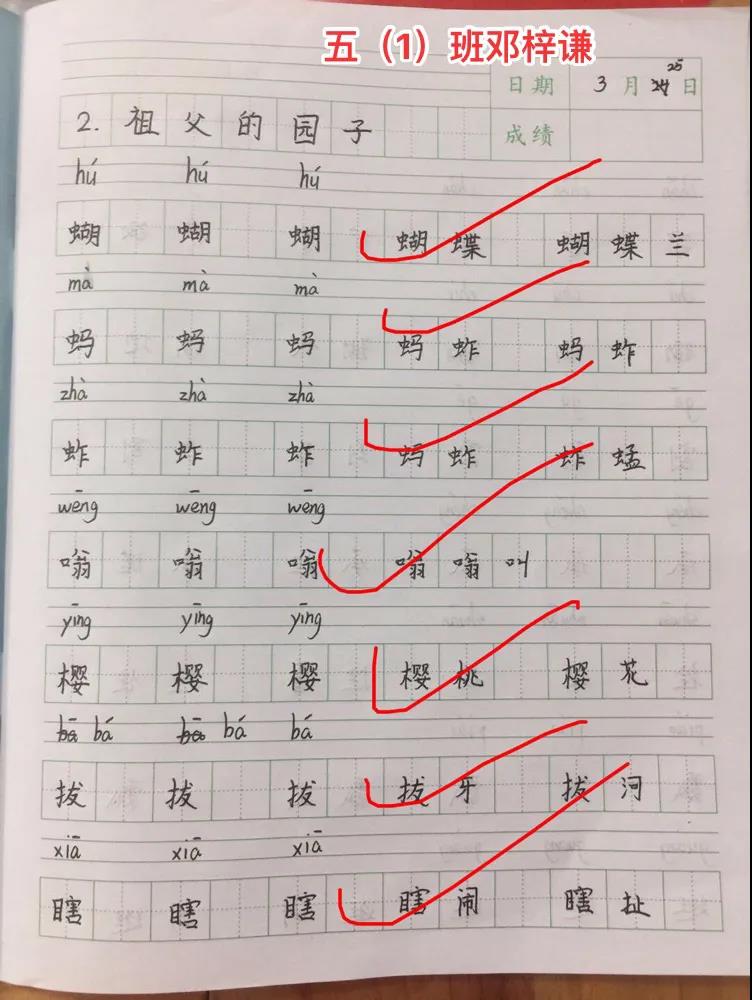 五（1）班邓梓谦
日期 3月25日
2.祖父的园子 成绩
hú hú hú
蝴 蝴 蝴 蝴蝶 蝴蝶兰
mà mà mà
蚂 蚂 蚂 蚂蚱 蚂蚱
zhà zhà zhà
蚱 蚱 蚱 蚂蚱 蚱蜢
wēng wēng wēng
嗡 嗡 嗡 嗡嗡叫
yīng yīng yīng
樱 樱 樱 樱桃 樱花
bá bá bá
拔 拔 拔 拔牙 拔河
xiā xiā xiā
瞎 瞎 瞎 瞎闹 瞎扯